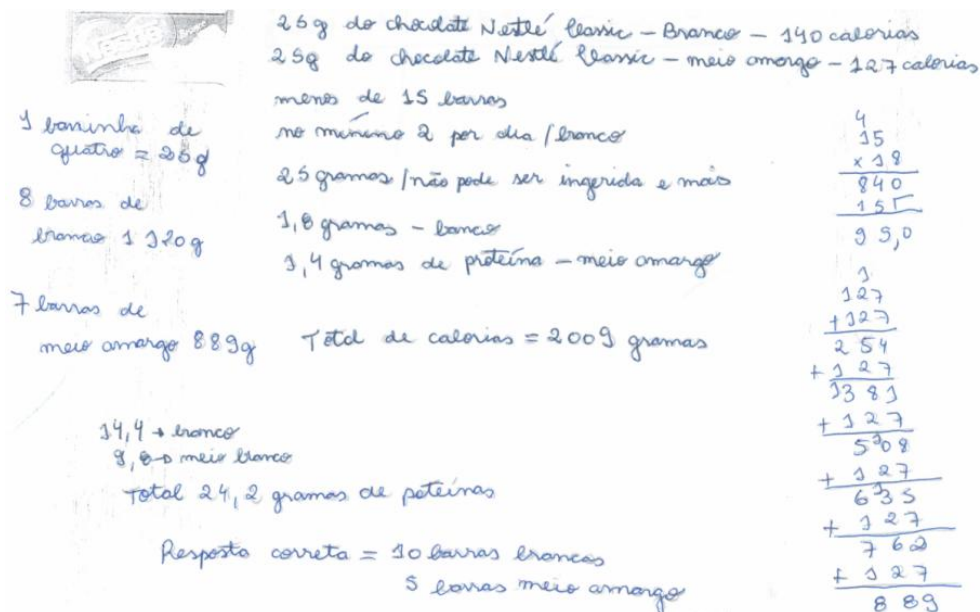 25g do chocolate Nestlé Classic - Branco - 140 calorias
25g do chocolate Nestlé Classic - meio amargo - 127 calorias
menos de 15 barras
1 barrinha de
quatro = 25g
no mínimo 2 por dia / branco
25 gramas / não pode ser ingerida e mais
8 barras de
branco 1 120g
1,8 gramas - banco
1,4 gramas de proteína - meio amargo
7 barras de
meio amargo 889g
Total de calorias = 2009 gramas
14,4 → branco
9,8 → meio branco
Total 24,2 gramas de poteínas
Resposta correta = 10 barras brancas
5 barras meio amargo
4
15
x 18
840
15
95,0
1
127
+127
254
+ 127
381
+ 127
508
+ 127
635
+ 127
762
+ 127
889